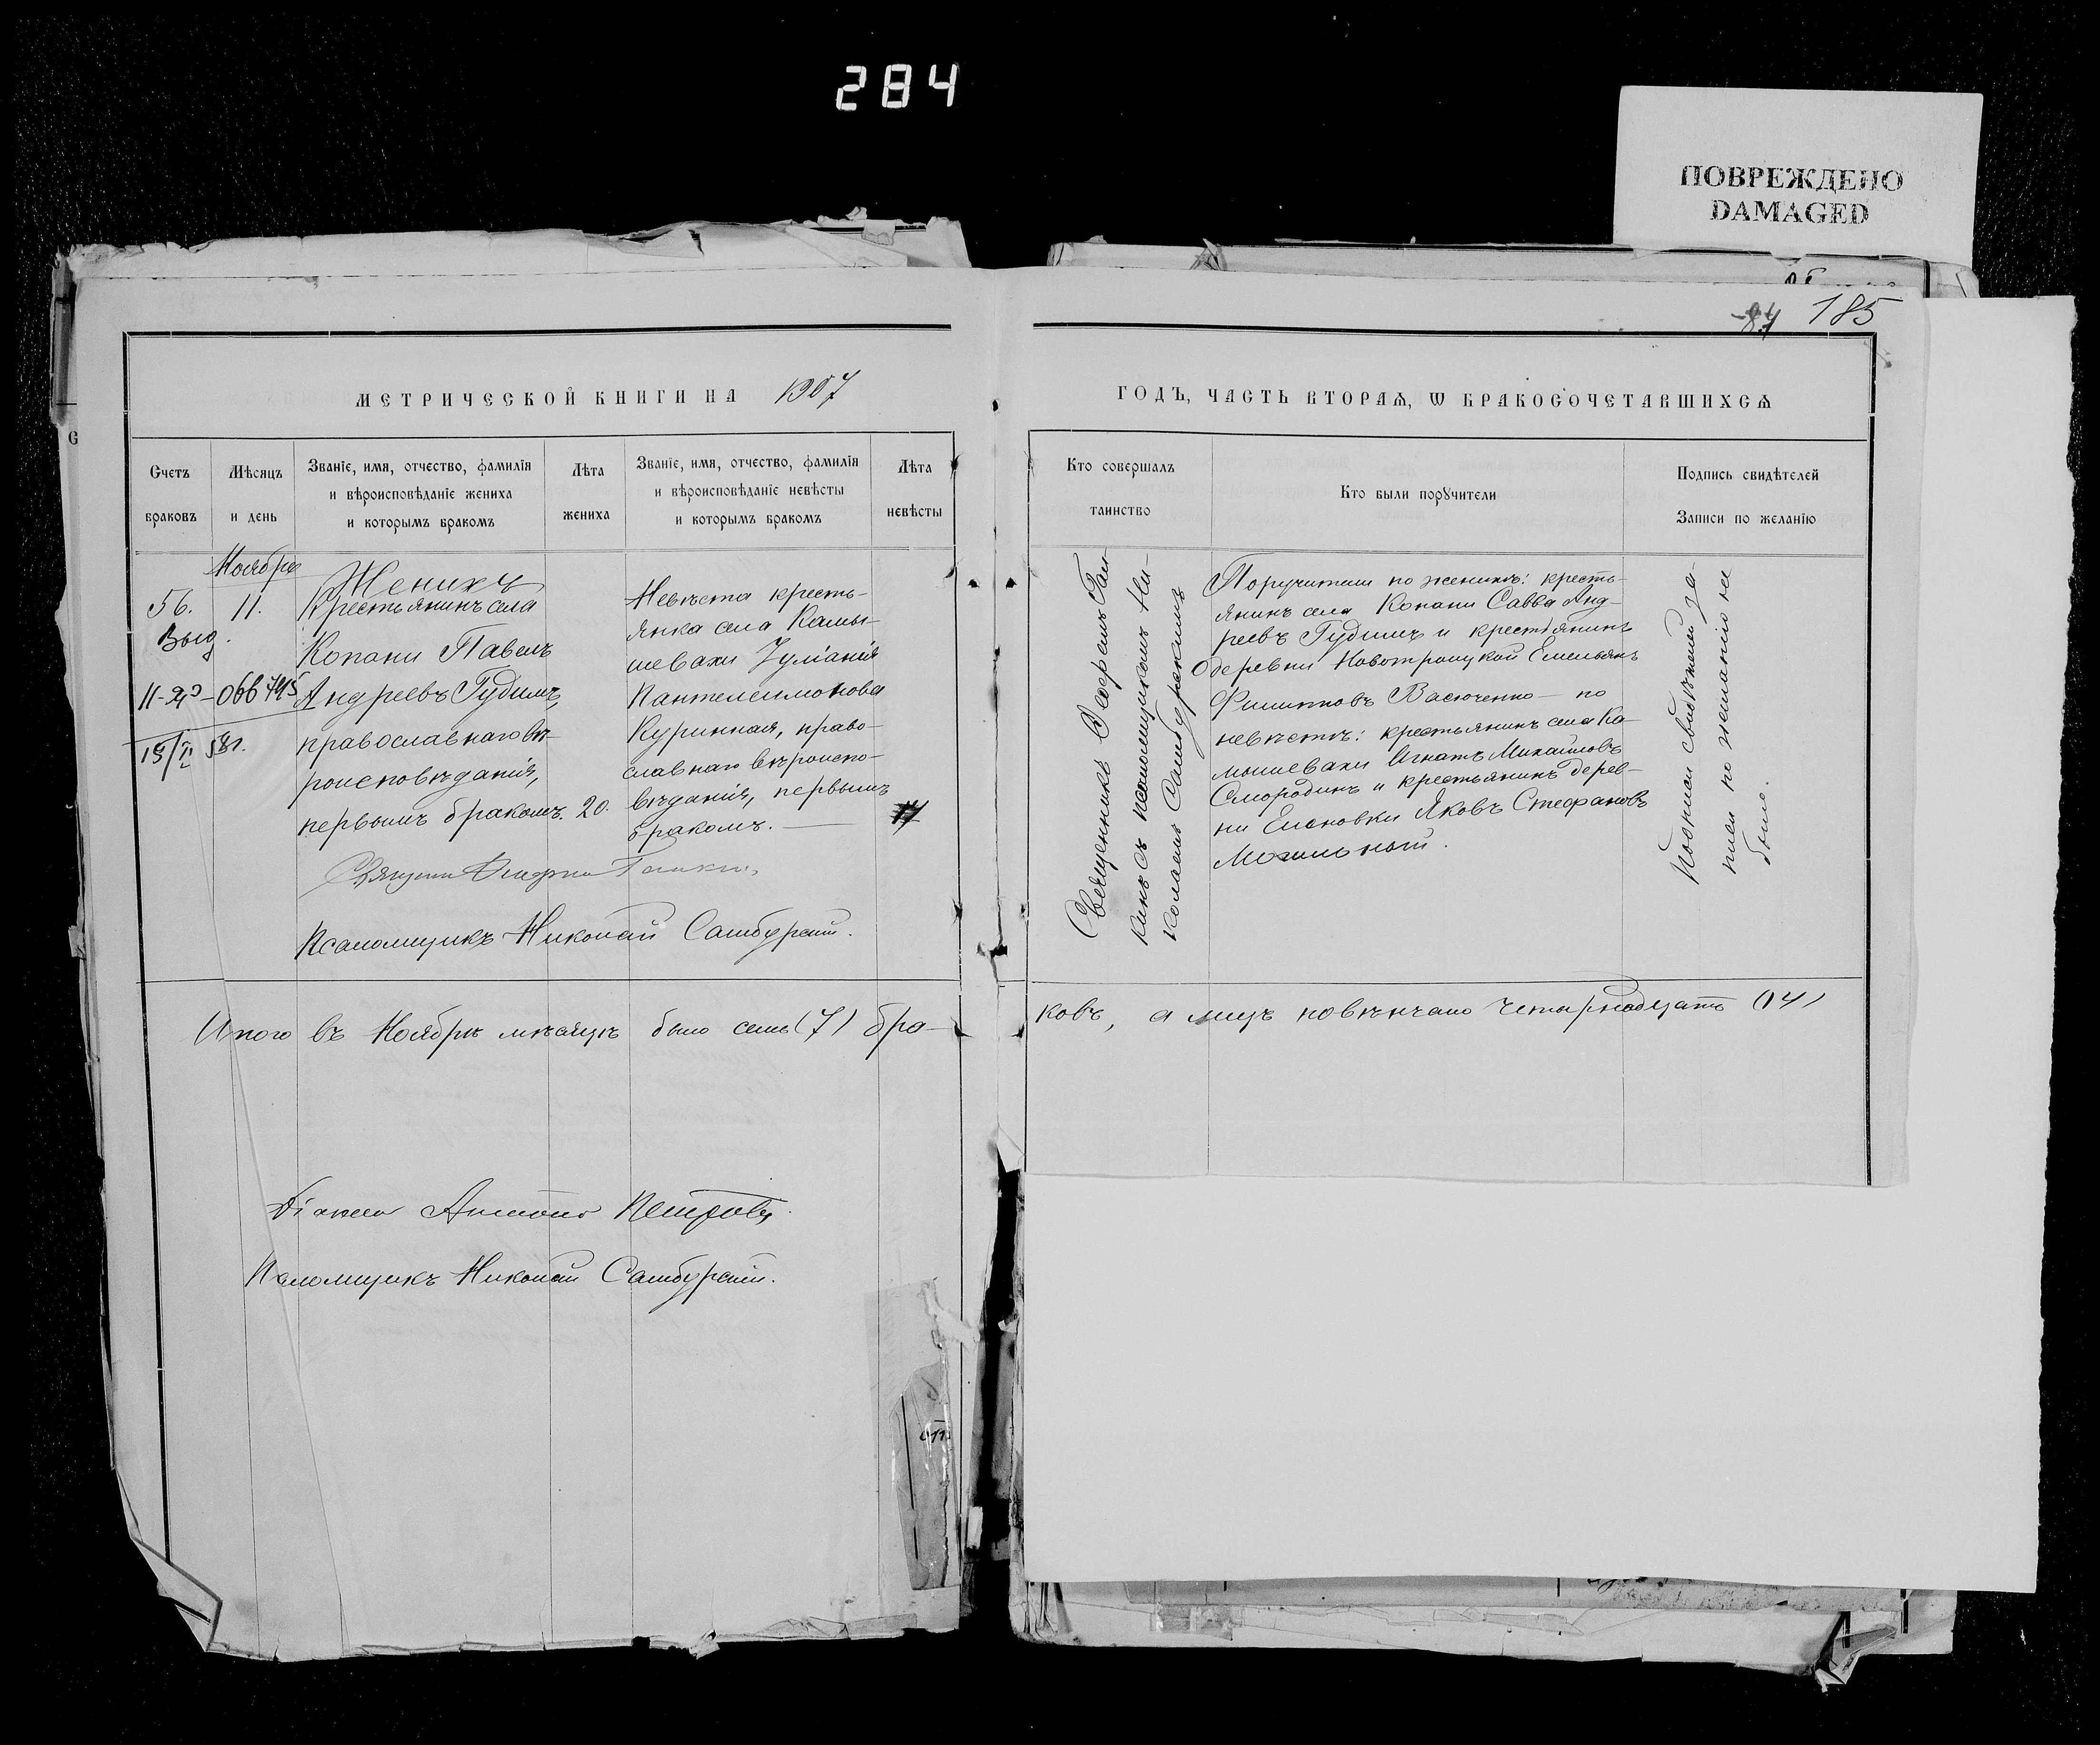 284
ПОВРЕЖДЕНО
DAMAGED
84 185
МЕТРИЧЕСКОЙ КНИГИ НА 1907
ГОДЪ, ЧАСТЬ ВТОРАѦ, Ѡ БРАКОСОЧЕТАВШИХСѦ
Счетъ
браковъ
Мѣсяцъ
и день
Званіе, имя, отчество, фамилія
и вѣроисповѣданіе жениха
и которымъ бракомъ
Лѣта
жениха
Званіе, имя, отчество, фамилія
и вѣроисповѣданіе невѣсты
и которымъ бракомъ
Лѣта
невѣсты
Кто совершалъ
таинство
Кто были порꙋчители
Подпись свидѣтелей
Записи по желанію
56.
Выд.
Ноябрь
11.
II-ЯЭ-066745
19/II 58г.
Женихъ
Крестьянинъ села
Копани Павелъ
Андреевъ Гудимъ,
православнаго вѣ-
роисповѣданія,
первымъ бракомъ.
20.
Невѣста кресть-
янка села Камы-
шевахи Іуліанія
Пантелеимонова
Куринная, право-
славнаго вѣроиспо-
вѣданія, первымъ
бракомъ.
17
Псаломщикъ Николай Самбурскій.
Священникъ
кинъ съ псаломщикомъ Ни-
колаемъ Самбурскимъ
Поручители по женихѣ: кресть-
янинъ села Копани Савва Анд-
реевъ Гудимъ и крестьянинъ
деревни Новотроицкой Емельянъ
Филипповъ Васюченко — по
невѣстѣ: крестьянинъ села Ка-
мышевахи Игнатъ Михайловъ
Смородинъ и крестьянинъ дерев-
ни Елановки Яковъ Стефановъ
Могильный.
Подписи свидѣтелей за-
писи по желанію не
было.
Итого въ Ноябрѣ мѣсяцѣ было семь (7) бра-
ковъ, а лицъ повѣнчано четырнадцать (14)
Діаконъ Антоній Петровъ
Псаломщикъ Николай Самбурскій.